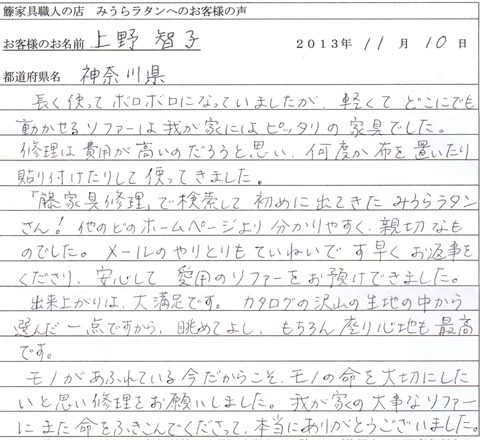 籐家具職人の店　みうらラタンへのお客様の声
お客様のお名前　上野 智子　2013年 11 月 10 日
都道府県名　神奈川県
長く使ってボロボロになっていましたが、軽くてどこにでも
動かせるソファーは我が家にはピッタリの家具でした。
修理は費用が高いのだろうと思い、何度か布を置いたり
貼り付けたりして使ってきました。
「籐家具修理」で検索して初めに出てきたみうらラタン
さん！他のどのホームページより分かりやすく、親切なも
のでした。メールのやりとりもていねいです早くお返事を
くださり、安心して愛用のソファーをお預けできました。
出来上がりは、大満足です。カタログの沢山の生地の中から
選んだ一点ですから、眺めてよし、もちろん座り心地も最高
です。
モノがあふれている今だからこそ、モノの命を大切にした
いと思い修理をお願いしました。我が家の大事なソファー
にまた命をふきこんでくださって、本当にありがとうございました。